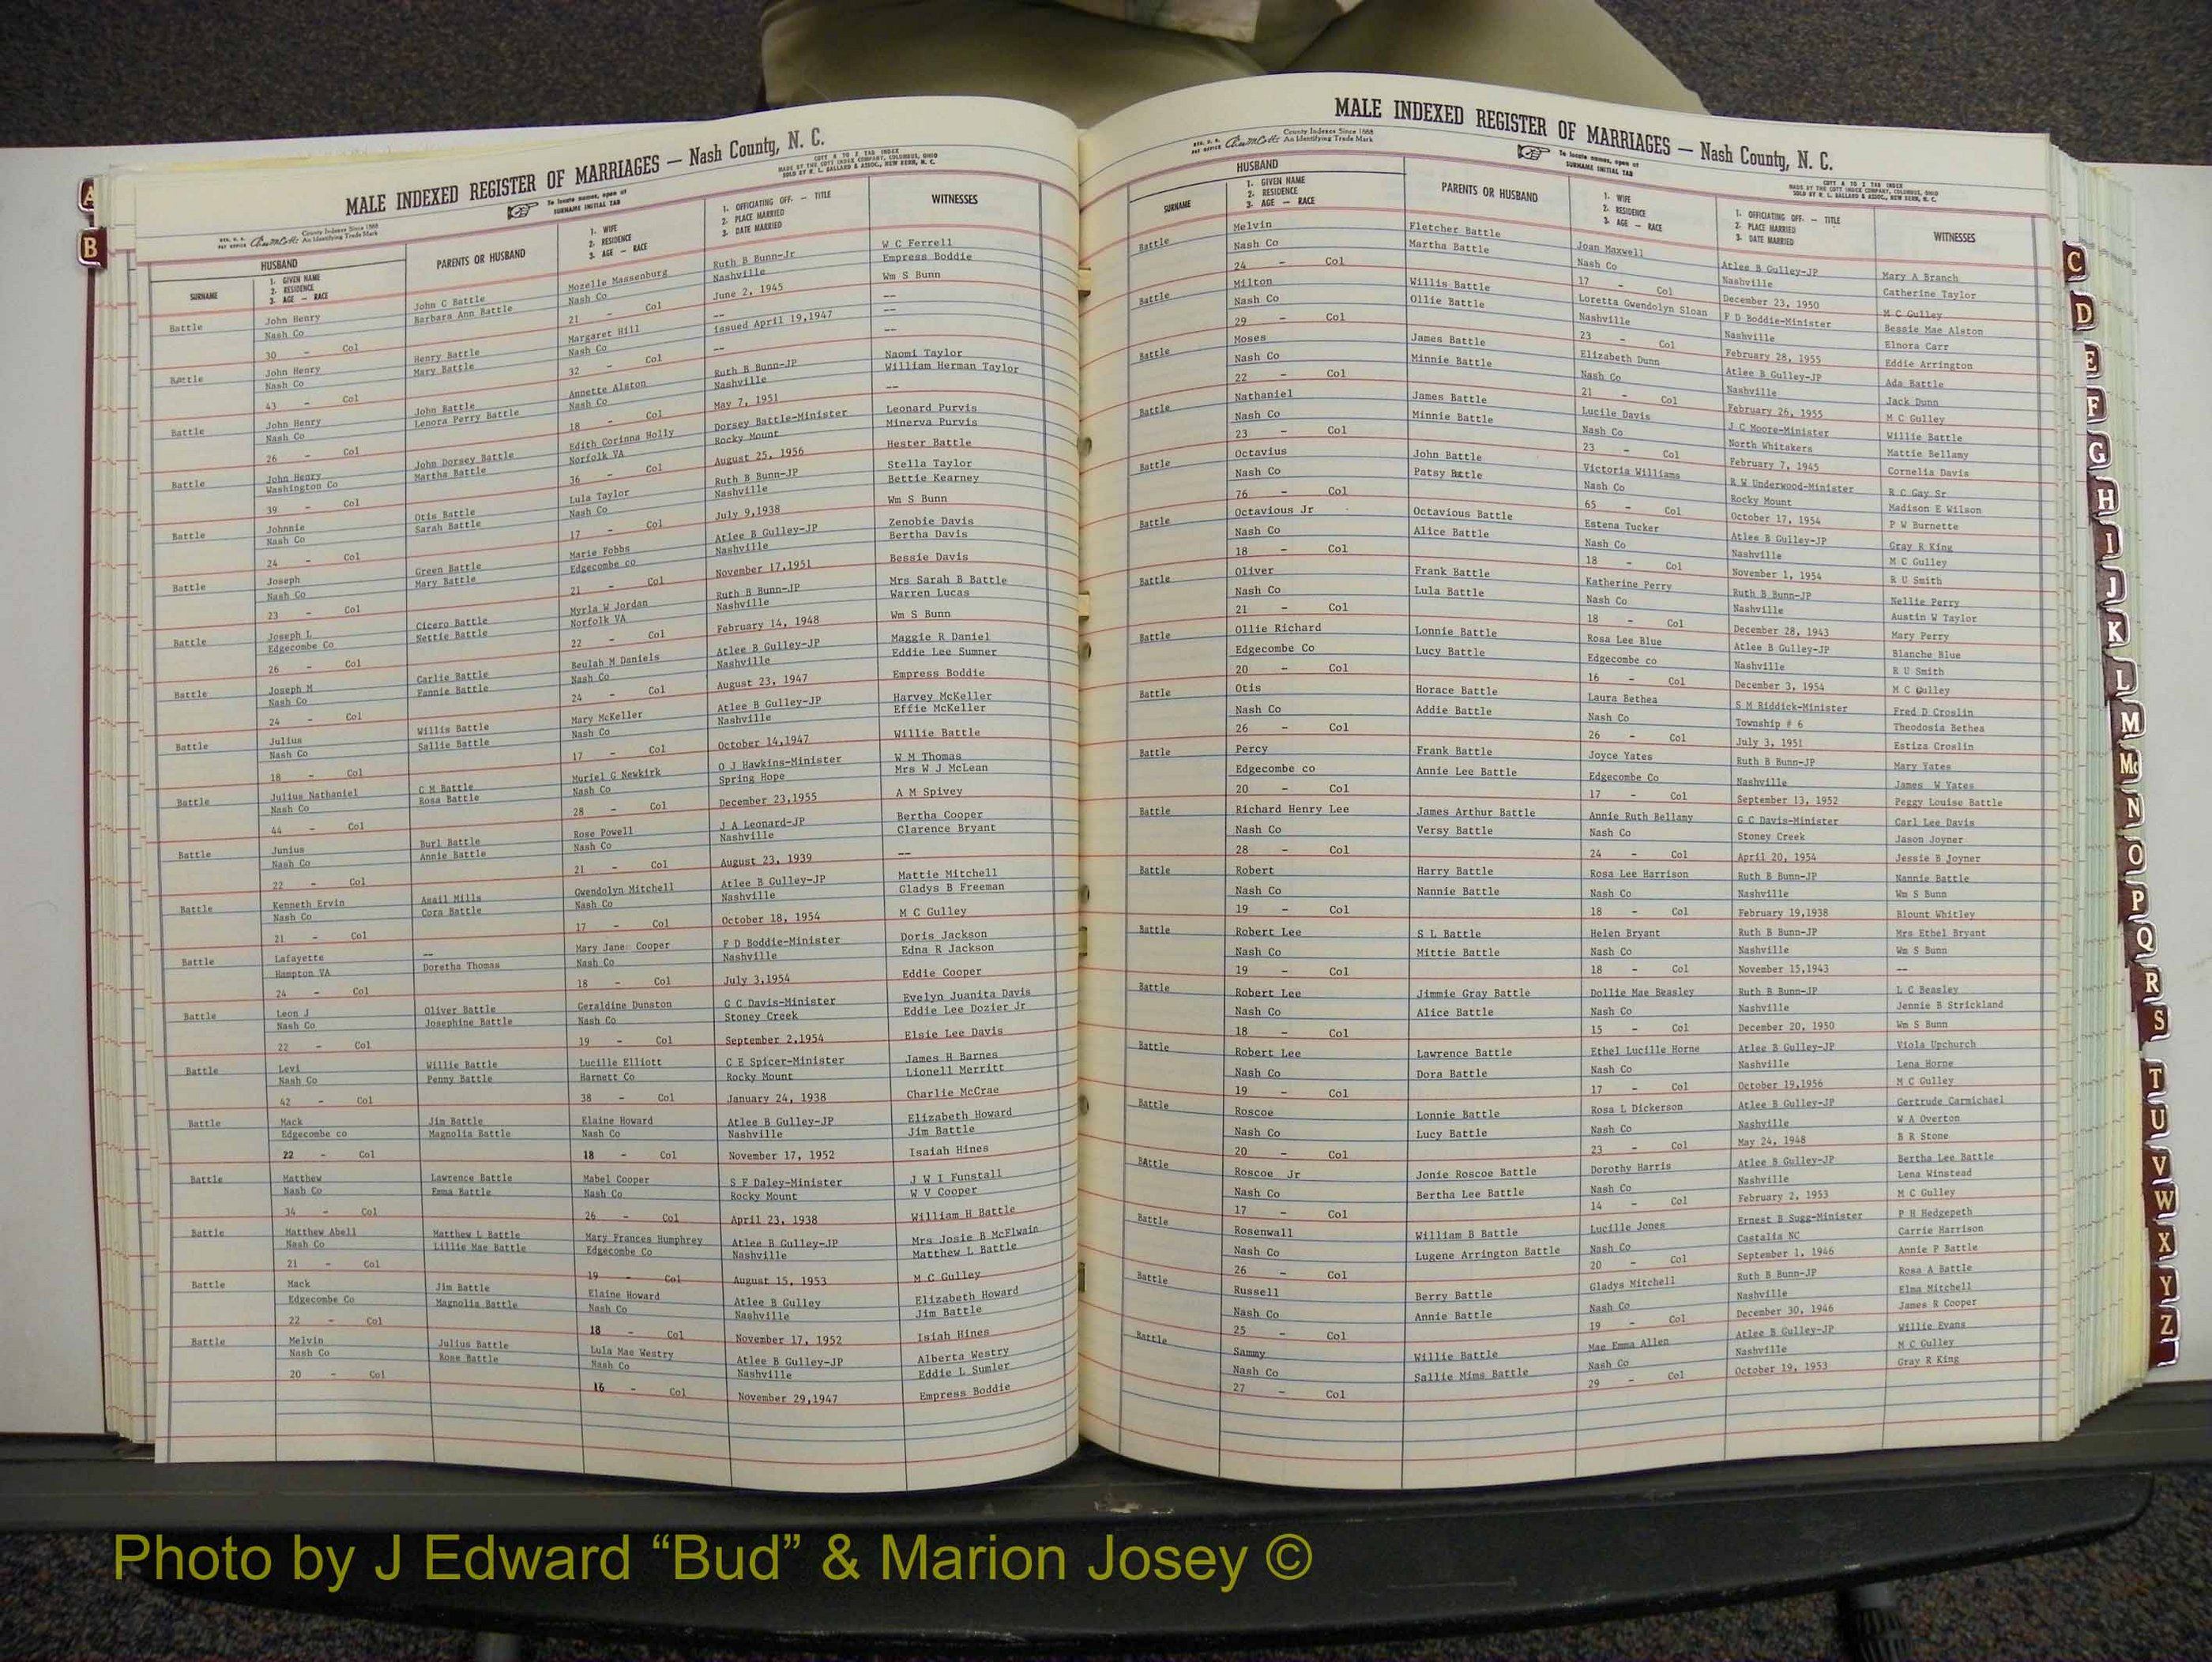 MALE INDEXED REGISTER OF MARRIAGES — Nash County, N. C.
County Indexes Since 1888
An Identifying Trade Mark
To locate names, open at
SURNAME INITIAL TAB
COTT A TO Z TAB INDEX
MADE BY THE COTT INDEX COMPANY, COLUMBUS, OHIO
SOLD BY R. L. BALLARD & ASSOC., NEW BERN, N. C.
HUSBAND
SURNAME
1. GIVEN NAME
2. RESIDENCE
3. AGE — RACE
PARENTS OR HUSBAND
1. WIFE
2. RESIDENCE
3. AGE — RACE
1. OFFICIATING OFF. — TITLE
2. PLACE MARRIED
3. DATE MARRIED
WITNESSES
Battle John Henry John C Battle Mozelle Massenburg Ruth B Bunn-Jr W C Ferrell
Nash Co Barbara Ann Battle Nash Co Nashville Empress Boddie
30 - Col 21 - Col June 2, 1945 Wm S Bunn
Battle John Henry Henry Battle Margaret Hill -- --
Nash Co Mary Battle Nash Co issued April 19,1947 --
43 - Col 32 - Col -- --
Battle John Henry John Battle Annette Alston Ruth B Bunn-JP Naomi Taylor
Nash Co Lenora Perry Battle Nash Co Nashville William Herman Taylor
26 - Col 18 - Col May 7, 1951 --
Battle John Henry John Dorsey Battle Edith Corinna Holly Dorsey Battle-Minister Leonard Purvis
Washington Co Martha Battle Norfolk VA Rocky Mount Minerva Purvis
39 - Col 36 - Col August 25, 1956 Hester Battle
Battle Johnnie Otis Battle Lula Taylor Ruth B Bunn-JP Stella Taylor
Nash Co Sarah Battle Nash Co Nashville Bettie Kearney
24 - Col 17 - Col July 9,1938 Wm S Bunn
Battle Joseph Green Battle Marie Fobbs Atlee B Gulley-JP Zenobie Davis
Nash Co Mary Battle Edgecombe co Nashville Bertha Davis
23 - Col 21 - Col November 17,1951 Bessie Davis
Battle Joseph L Cicero Battle Myrla W Jordan Ruth B Bunn-JP Mrs Sarah B Battle
Edgecombe Co Nettie Battle Norfolk VA Nashville Warren Lucas
26 - Col 22 - Col February 14, 1948 Wm S Bunn
Battle Joseph M Carlie Battle Beulah M Daniels Atlee B Gulley-JP Maggie R Daniel
Nash Co Fannie Battle Nash Co Nashville Eddie Lee Sumner
24 - Col 24 - Col August 23, 1947 Empress Boddie
Battle Julius Willis Battle Mary McKeller Atlee B Gulley-JP Harvey McKeller
Nash Co Sallie Battle Nash Co Nashville Effie McKeller
18 - Col 17 - Col October 14,1947 Willie Battle
Battle Julius Nathaniel C M Battle Muriel G Newkirk O J Hawkins-Minister W M Thomas
Nash Co Rosa Battle Nash Co Spring Hope Mrs W J McLean
44 - Col 28 - Col December 23,1955 A M Spivey
Battle Junius Burl Battle Rose Powell J A Leonard-JP Bertha Cooper
Nash Co Annie Battle Nash Co Nashville Clarence Bryant
22 - Col 21 - Col August 23, 1939 --
Battle Kenneth Ervin Asail Mills Gwendolyn Mitchell Atlee B Gulley-JP Mattie Mitchell
Nash Co Cora Battle Nash Co Nashville Gladys B Freeman
21 - Col 17 - Col October 18, 1954 M C Gulley
Battle Lafayette -- Mary Jane Cooper F D Boddie-Minister Doris Jackson
Hampton VA Doretha Thomas Nash Co Nashville Edna R Jackson
24 - Col 18 - Col July 3,1954 Eddie Cooper
Battle Leon J Oliver Battle Geraldine Dunston G C Davis-Minister Evelyn Juanita Davis
Nash Co Josephine Battle Nash Co Stoney Creek Eddie Lee Dozier Jr
22 - Col 19 - Col September 2,1954 Elsie Lee Davis
Battle Levi Willie Battle Lucille Elliott C E Spicer-Minister James H Barnes
Nash Co Penny Battle Harnett Co Rocky Mount Lionell Merritt
42 - Col 38 - Col January 24, 1938 Charlie McCrae
Battle Mack Jim Battle Elaine Howard Atlee B Gulley-JP Elizabeth Howard
Edgecombe co Magnolia Battle Nash Co Nashville Jim Battle
22 - Col 18 - Col November 17, 1952 Isaiah Hines
Battle Matthew Lawrence Battle Mabel Cooper S F Daley-Minister J W I Funstall
Nash Co Emma Battle Nash Co Rocky Mount W V Cooper
34 - Col 26 - Col April 23, 1938 William H Battle
Battle Matthew Abell Matthew L Battle Mary Frances Humphrey Atlee B Gulley-JP Mrs Josie B McFlwain
Nash Co Lillie Mae Battle Edgecombe Co Nashville Matthew L Battle
21 - Col 19 - Col August 15, 1953 M C Gulley
Battle Mack Jim Battle Elaine Howard Atlee B Gulley Elizabeth Howard
Edgecombe Co Magnolia Battle Nash Co Nashville Jim Battle
22 - Col 18 - Col November 17, 1952 Isiah Hines
Battle Melvin Julius Battle Lula Mae Westry Atlee B Gulley-JP Alberta Westry
Nash Co Rose Battle Nash Co Nashville Eddie L Sumler
20 - Col 16 - Col November 29,1947 Empress Boddie
MALE INDEXED REGISTER OF MARRIAGES — Nash County, N. C.
County Indexes Since 1888
An Identifying Trade Mark
To locate names, open at
SURNAME INITIAL TAB
COTT A TO Z TAB INDEX
MADE BY THE COTT INDEX COMPANY, COLUMBUS, OHIO
SOLD BY R. L. BALLARD & ASSOC., NEW BERN, N. C.
HUSBAND
SURNAME
1. GIVEN NAME
2. RESIDENCE
3. AGE — RACE
PARENTS OR HUSBAND
1. WIFE
2. RESIDENCE
3. AGE — RACE
1. OFFICIATING OFF. — TITLE
2. PLACE MARRIED
3. DATE MARRIED
WITNESSES
Battle Melvin Fletcher Battle Joan Maxwell Atlee B Gulley-JP Mary A Branch
Nash Co Martha Battle Nash Co Nashville Catherine Taylor
24 - Col 17 - Col December 23, 1950 M C Gulley
Battle Milton Willis Battle Loretta Gwendolyn Sloan F D Boddie-Minister Bessie Mae Alston
Nash Co Ollie Battle Nashville Nashville Elnora Carr
29 - Col 23 - Col February 28, 1955 Eddie Arrington
Battle Moses James Battle Elizabeth Dunn Atlee B Gulley-JP Ada Battle
Nash Co Minnie Battle Nash Co Nashville Jack Dunn
22 - Col 21 - Col February 26, 1955 M C Gulley
Battle Nathaniel James Battle Lucile Davis J C Moore-Minister Willie Battle
Nash Co Minnie Battle Nash Co North Whitakers Mattie Bellamy
23 - Col 23 - Col February 7, 1945 Cornelia Davis
Battle Octavius John Battle Victoria Williams R W Underwood-Minister R C Gay Sr
Nash Co Patsy Battle Nash Co Rocky Mount Madison E Wilson
76 - Col 65 - Col October 17, 1954 P W Burnette
Battle Octavious Jr Octavious Battle Estena Tucker Atlee B Gulley-JP Gray R King
Nash Co Alice Battle Nash Co Nashville M C Gulley
18 - Col 18 - Col November 1, 1954 R U Smith
Battle Oliver Frank Battle Katherine Perry Ruth B Bunn-JP Nellie Perry
Nash Co Lula Battle Nash Co Nashville Austin W Taylor
21 - Col 18 - Col December 28, 1943 Mary Perry
Battle Ollie Richard Lonnie Battle Rosa Lee Blue Atlee B Gulley-JP Blanche Blue
Edgecombe Co Lucy Battle Edgecombe co Nashville R U Smith
20 - Col 16 - Col December 3, 1954 M C Gulley
Battle Otis Horace Battle Laura Bethea S M Riddick-Minister Fred D Croslin
Nash Co Addie Battle Nash Co Township # 6 Theodosia Bethea
26 - Col 26 - Col July 3, 1951 Estiza Croslin
Battle Percy Frank Battle Joyce Yates Ruth B Bunn-JP Mary Yates
Edgecombe co Annie Lee Battle Edgecombe Co Nashville James W Yates
20 - Col 17 - Col September 13, 1952 Peggy Louise Battle
Battle Richard Henry Lee James Arthur Battle Annie Ruth Bellamy G C Davis-Minister Carl Lee Davis
Nash Co Versy Battle Nash Co Stoney Creek Jason Joyner
28 - Col 24 - Col April 20, 1954 Jessie B Joyner
Battle Robert Harry Battle Rosa Lee Harrison Ruth B Bunn-JP Nannie Battle
Nash Co Nannie Battle Nash Co Nashville Wm S Bunn
19 - Col 18 - Col February 19,1938 Blount Whitley
Battle Robert Lee S L Battle Helen Bryant Ruth B Bunn-JP Mrs Ethel Bryant
Nash Co Mittie Battle Nash Co Nashville Wm S Bunn
19 - Col 18 - Col November 15,1943 --
Battle Robert Lee Jimmie Gray Battle Dollie Mae Beasley Ruth B Bunn-JP L C Beasley
Nash Co Alice Battle Nash Co Nashville Jennie B Strickland
18 - Col 15 - Col December 20, 1950 Wm S Bunn
Battle Robert Lee Lawrence Battle Ethel Lucille Horne Atlee B Gulley-JP Viola Upchurch
Nash Co Dora Battle Nash Co Nashville Lena Horne
19 - Col 17 - Col October 19,1956 M C Gulley
Battle Roscoe Lonnie Battle Rosa L Dickerson Atlee B Gulley-JP Gertrude Carmichael
Nash Co Lucy Battle Nash Co Nashville W A Overton
20 - Col 23 - Col May 24, 1948 B R Stone
BAttle Roscoe Jr Jonie Roscoe Battle Dorothy Harris Atlee B Gulley-JP Bertha Lee Battle
Nash Co Bertha Lee Battle Nash Co Nashville Lena Winstead
17 - Col 14 - Col February 2, 1953 M C Gulley
Battle Rosenwall William B Battle Lucille Jones Ernest B Sugg-Minister P H Hedgepeth
Nash Co Lugene Arrington Battle Nash Co Castalia NC Carrie Harrison
26 - Col 20 - Col September 1, 1946 Annie P Battle
Battle Russell Berry Battle Gladys Mitchell Ruth B Bunn-JP Rosa A Battle
Nash Co Annie Battle Nash Co Nashville Elma Mitchell
25 - Col 19 - Col December 30, 1946 James R Cooper
Battle Sammy Willie Battle Mae Emma Allen Atlee B Gulley-JP Willie Evans
Nash Co Sallie Mims Battle Nash Co Nashville M C Gulley
27 - Col 29 - Col October 19, 1953 Gray R King
A
B
C
D
E
F
G
H
I
J
K
L
M
Mc
N
O
P
Q
R
S
T
U
V
W
X
Y
Z
Photo by J Edward “Bud” & Marion Josey ©